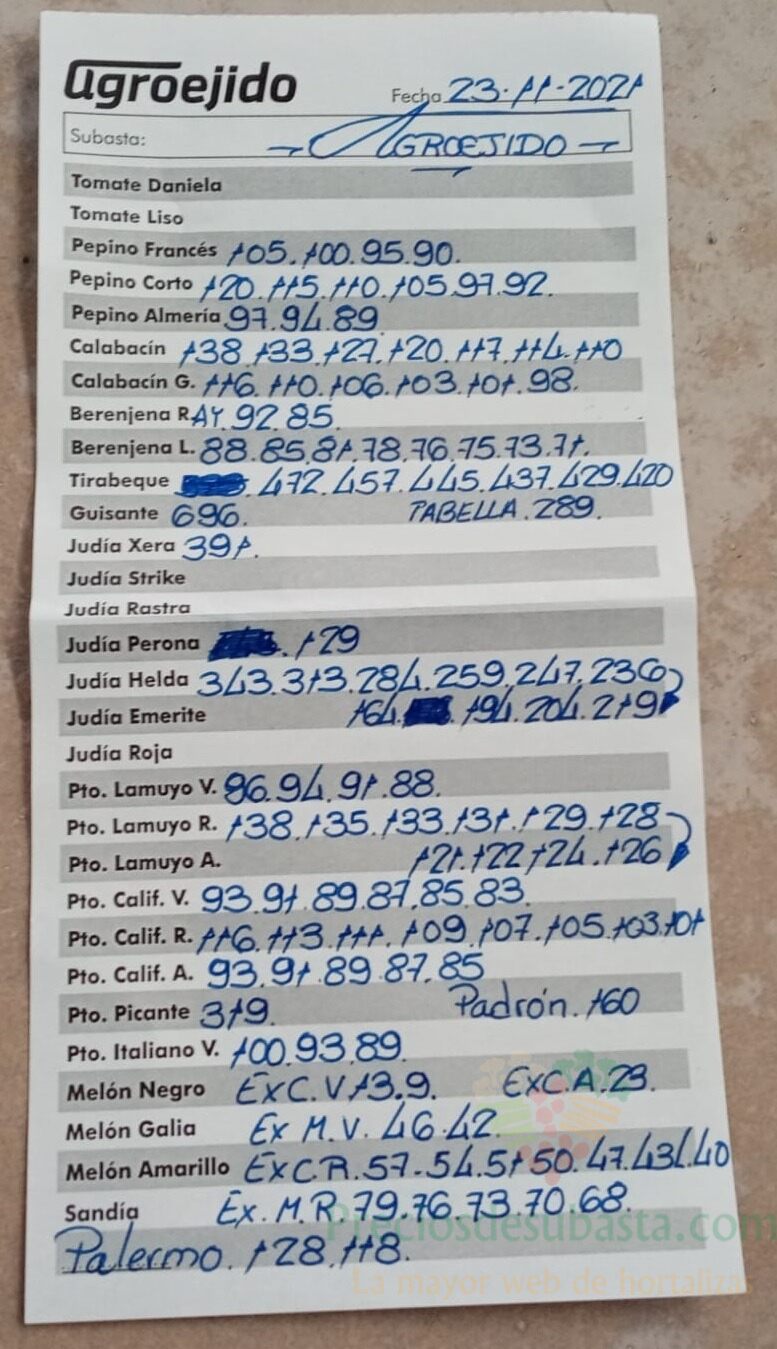 agroejido
Fecha 23-11-2021
Subasta: - AGROEJIDO -
Tomate Daniela
Tomate Liso
Pepino Francés 105.100.95.90.
Pepino Corto 120.115.110.105.97.92.
Pepino Almería 97.94.89
Calabacín 138.133.127.120.117.114.110
Calabacín G. 116.110.106.103.101.98.
Berenjena R. AY. 92.85.
Berenjena L. 88.85.81.78.76.75.73.71.
Tirabeque . 472.457.445.437.429.420
Guisante 696. TABELLA. 289.
Judía Xera 391.
Judía Strike
Judía Rastra
Judía Perona . 129
Judía Helda 343.313.284.259.247.236
Judía Emerite 164. . 194.204.219
Judía Roja
Pto. Lamuyo V. 96.94.91.88.
Pto. Lamuyo R. 138.135.133.131.129.128
Pto. Lamuyo A. 121.122.124.126
Pto. Calif. V. 93.91.89.87.85.83.
Pto. Calif. R. 116.113.111.109.107.105.103.101
Pto. Calif. A. 93.91.89.87.85
Pto. Picante 319. Padrón. 160
Pto. Italiano V. 100.93.89.
Melón Negro Ex C.V 13.9. Ex C.A. 23.
Melón Galia Ex M.V. 46.42.
Melón Amarillo Ex C.R. 57-54.51 50.47.43.40
Sandía Ex. M.R. 79.76.73.70.68.
Preciosdesubasta.com
Palermo. 128.118.
La mayor web de hortaliza